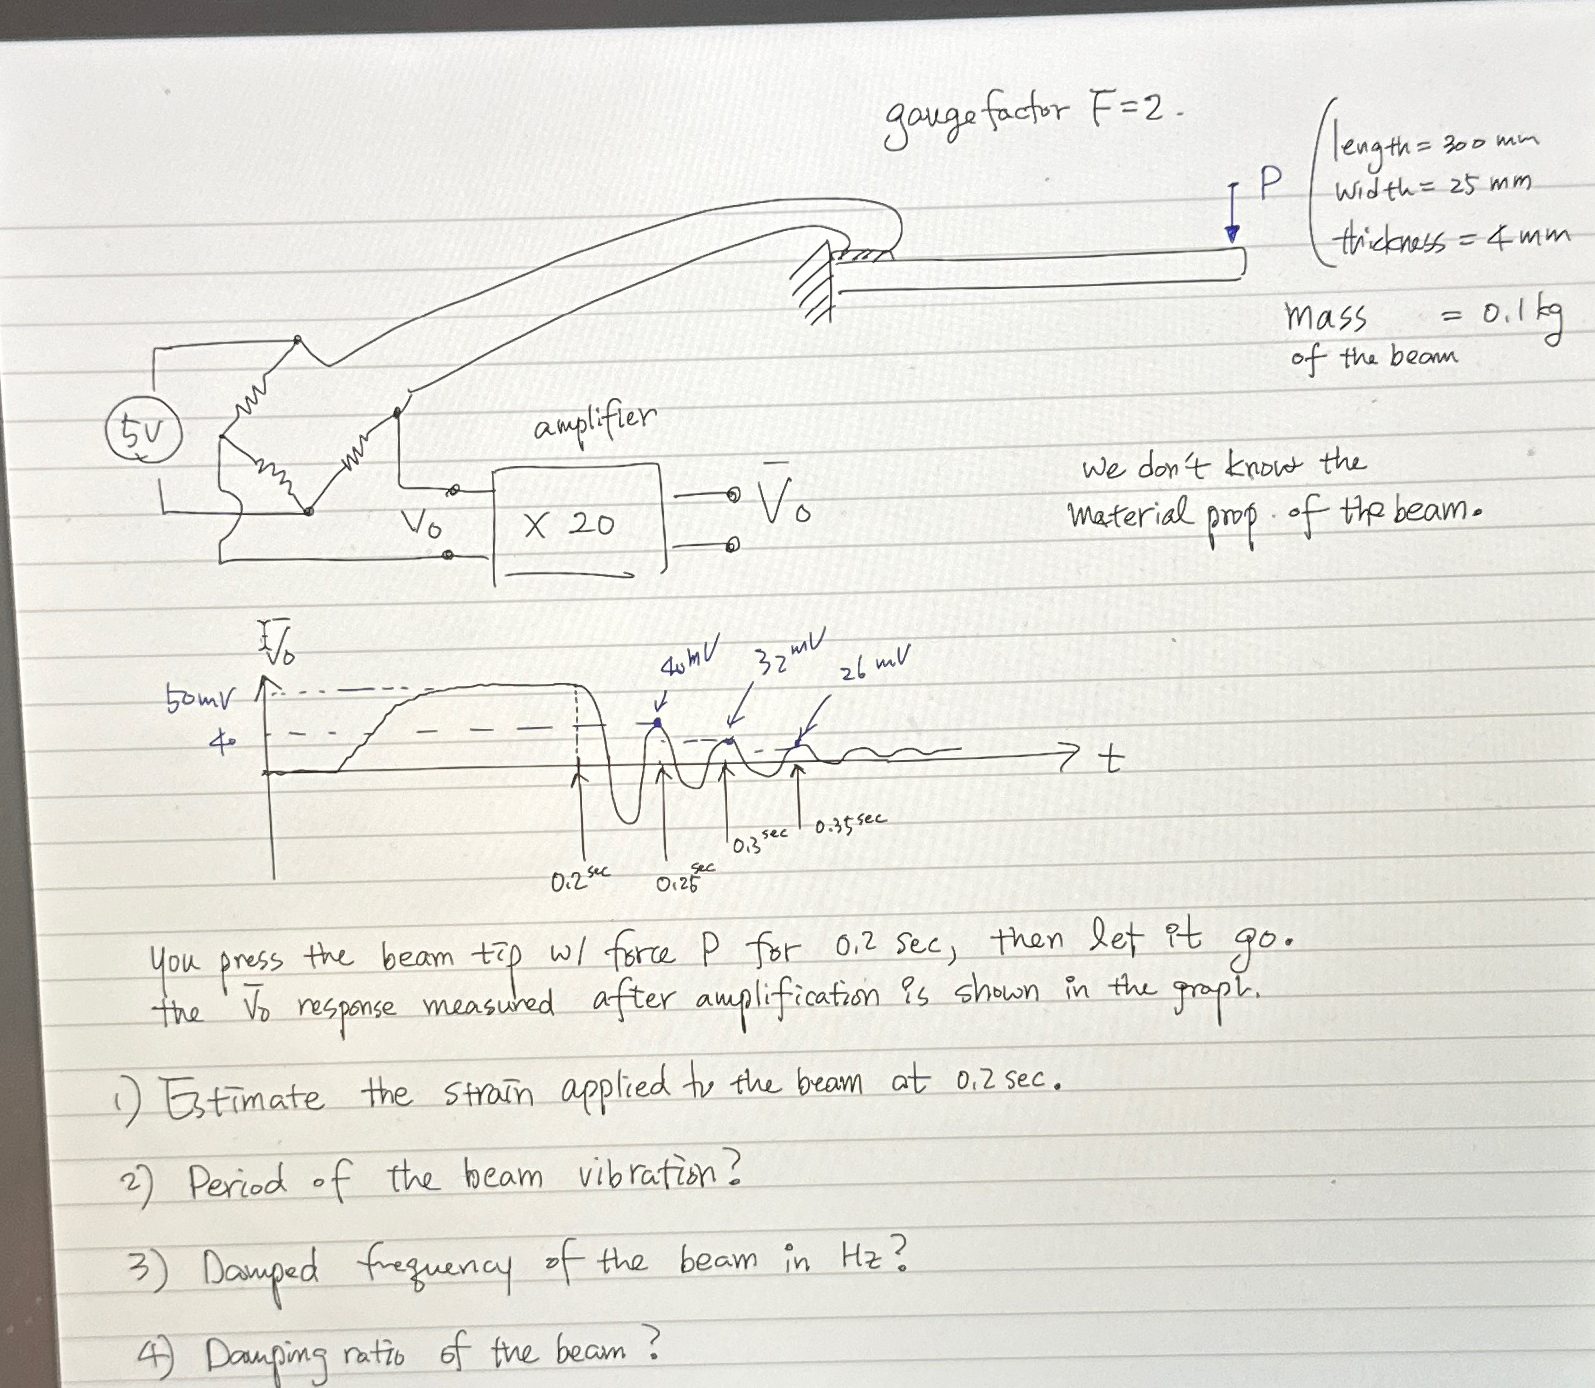 gauge factor F = 2.
P
length = 300 mm
width = 25 mm
thickness = 4 mm
mass = 0.1 kg
of the beam
5V
amplifier
Vo
X 20
V̄o
we don't know the
material prop. of the beam.
V̄o
50mV
40
40mV
32mV
26mV
t
0.2 sec
0.25 sec
0.3 sec
0.35 sec
You press the beam tip w/ force P for 0.2 sec, then let it go.
the V̄o response measured after amplification is shown in the graph.
1) Estimate the strain applied to the beam at 0.2 sec.
2) Period of the beam vibration?
3) Damped frequency of the beam in Hz?
4) Damping ratio of the beam?